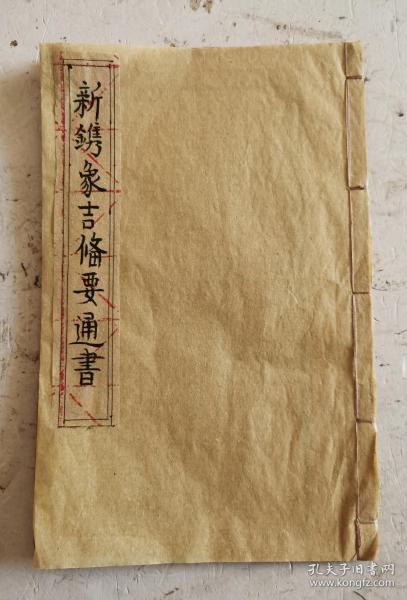 新鐫象吉備要通書
孔夫子旧书网
www.kongfz.com